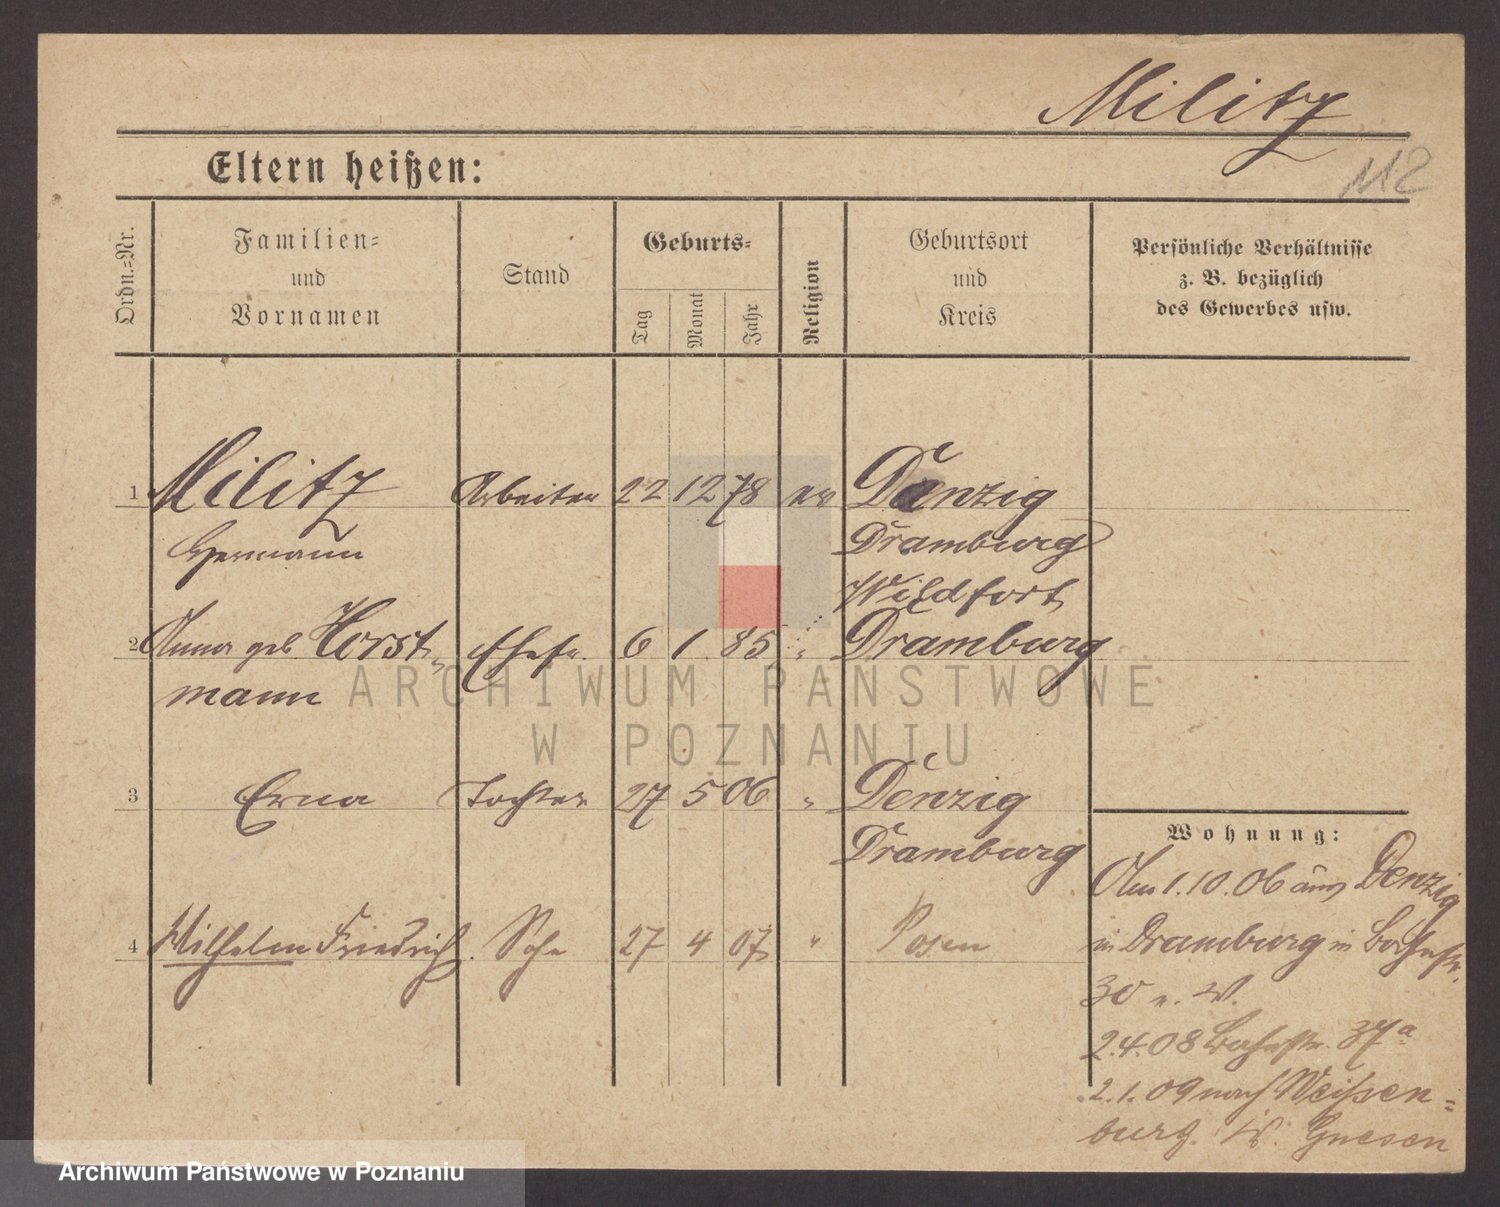 Militz
112
Eltern heißen:
Ordn.-Nr.
Familien-
und
Vornamen
Stand
Geburts-
Tag
Monat
Jahr
Religion
Geburtsort
und
Kreis
Persönliche Verhältnisse
z. B. bezüglich
des Gewerbes usw.
1 Militz Arbeiter 22 12 78 ev Denzig
Hermann Dramburg
Wildfort
2 Anna geb Horst- Ehefr. 6 1 85 " Dramburg
mann
ARCHIWUM PAŃSTWOWE
W POZNANIU
3 Erna Tochter 27 5 06 " Denzig
Dramburg
4 Wilhelm Friedrich. Sohn 27 4 07 " Posen
Wohnung:
Am 1.10.06 aus Denzig
in Dramburg in Bachstr.
30 n. W.
2.4.08 37a
2.1.09 nach Weißen-
burg. W. Gnesen
Archiwum Państwowe w Poznaniu